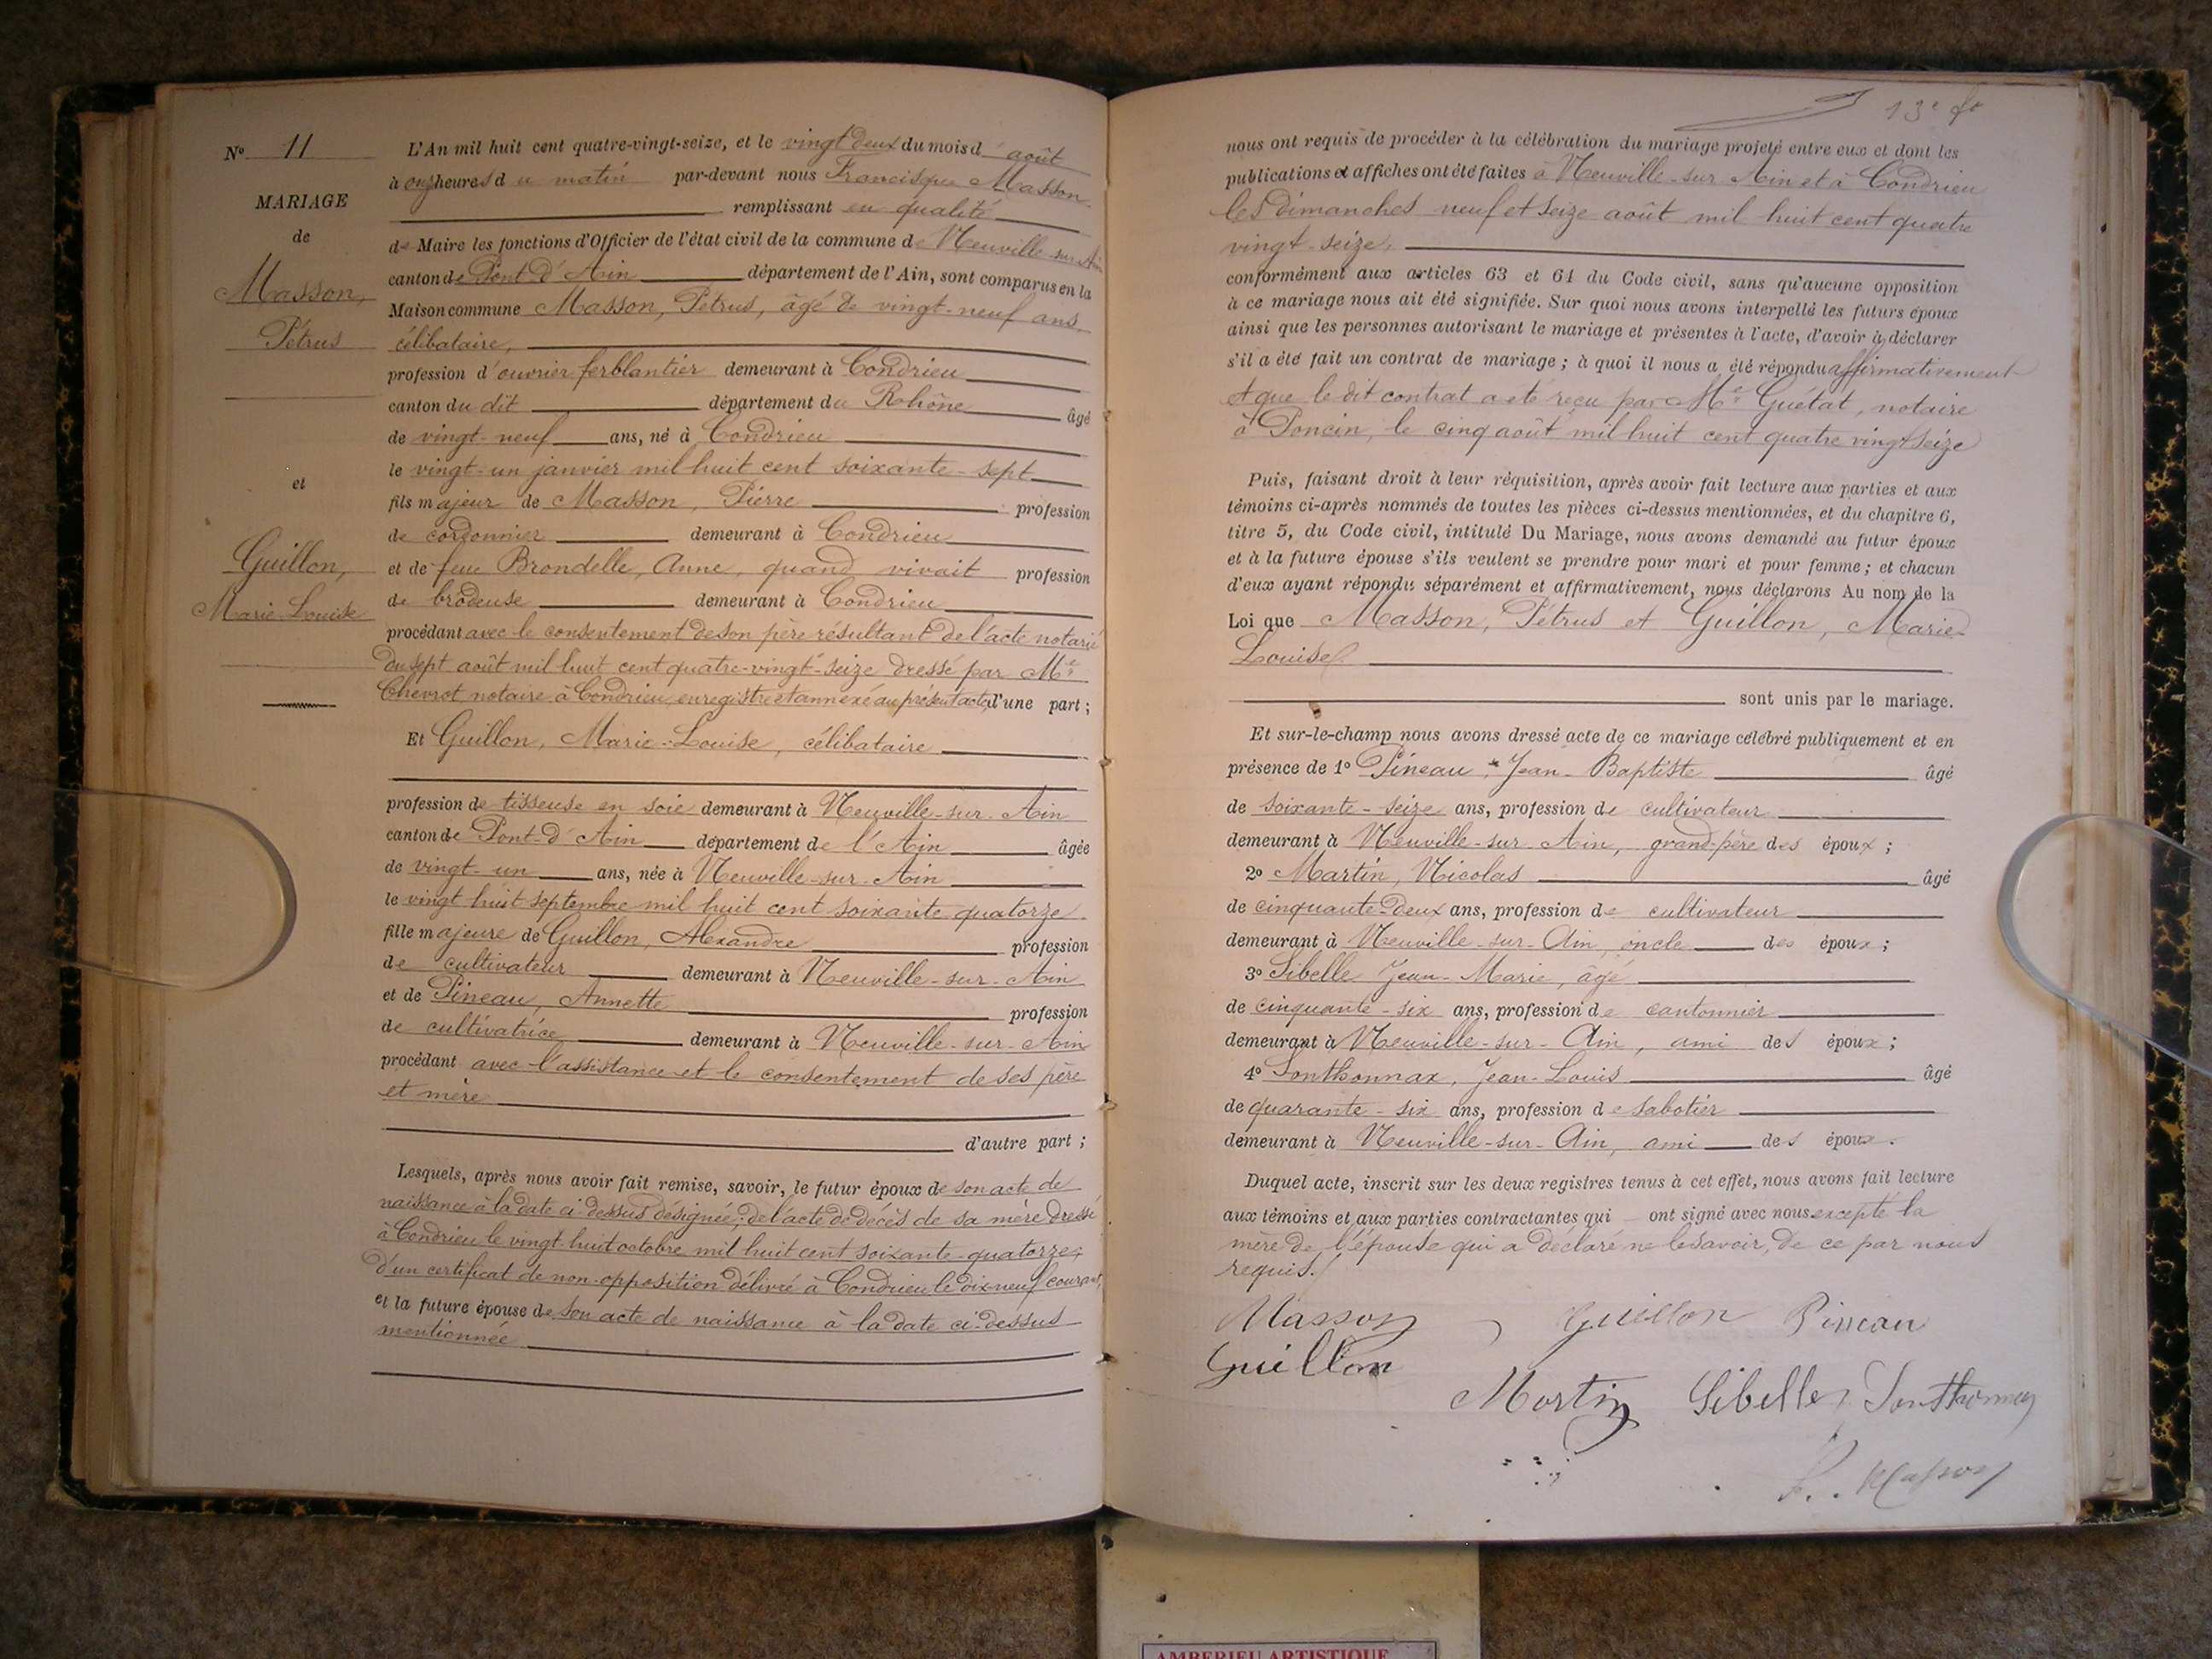 N° 11
MARIAGE
de
Masson,
Pétrus
et
Guillon,
Marie Louise
L'An mil huit cent quatre-vingt-seize, et le vingt deux du mois d'août
à onze heures du matin par-devant nous Francisque Masson
remplissant en qualité
de Maire les fonctions d'Officier de l'état civil de la commune de Neuville-sur-Ain
canton de Pont d'Ain département de l'Ain, sont comparus en la
Maison commune Masson, Pétrus, âgé de vingt-neuf ans
célibataire,
profession d'ouvrier ferblantier demeurant à Condrieu
canton du dit département du Rhône âgé
de vingt-neuf ans, né à Condrieu
le vingt-un janvier mil huit cent soixante-sept
fils majeur de Masson, Pierre profession
de cordonnier demeurant à Condrieu
et de feue Brondelle, Anne, quand vivait profession
de brodeuse demeurant à Condrieu
procédant avec le consentement de son père résultant de l'acte notarié
du sept août mil huit cent quatre-vingt-seize dressé par Me
Chevrot notaire à Condrieu, enregistré et annexé au présent acte, d'une part ;
Et Guillon, Marie-Louise, célibataire
profession de tisseuse en soie demeurant à Neuville-sur-Ain
canton de Pont-d'Ain département de l'Ain âgée
de vingt-un ans, née à Neuville-sur-Ain
le vingt huit septembre mil huit cent soixante quatorze
fille majeure de Guillon, Alexandre profession
de cultivateur demeurant à Neuville-sur-Ain
et de Pineau, Annette profession
de cultivatrice demeurant à Neuville-sur-Ain
procédant avec l'assistance et le consentement de ses père
et mère
d'autre part ;
Lesquels, après nous avoir fait remise, savoir, le futur époux de son acte de
naissance à la date ci-dessus désignée ; de l'acte de décès de sa mère dressé
à Condrieu le vingt-huit octobre mil huit cent soixante-quatorze ;
d'un certificat de non-opposition délivré à Condrieu le dix-neuf courant,
et la future épouse de son acte de naissance à la date ci-dessus
mentionnée
13e ft
nous ont requis de procéder à la célébration du mariage projeté entre eux et dont les
publications et affiches ont été faites à Neuville-sur-Ain et à Condrieu
les dimanches neuf et seize août mil huit cent quatre
vingt-seize,
conformément aux articles 63 et 64 du Code civil, sans qu'aucune opposition
à ce mariage nous ait été signifiée. Sur quoi nous avons interpellé les futurs époux
ainsi que les personnes autorisant le mariage et présentes à l'acte, d'avoir à déclarer
s'il a été fait un contrat de mariage ; à quoi il nous a été répondu affirmativement
et que le dit contrat a été reçu par Me Guétat, notaire
à Poncin, le cinq août mil huit cent quatre vingt seize
Puis, faisant droit à leur réquisition, après avoir fait lecture aux parties et aux
témoins ci-après nommés de toutes les pièces ci-dessus mentionnées, et du chapitre 6,
titre 5, du Code civil, intitulé Du Mariage, nous avons demandé au futur époux
et à la future épouse s'ils veulent se prendre pour mari et pour femme ; et chacun
d'eux ayant répondu séparément et affirmativement, nous déclarons Au nom de la
Loi que Masson, Pétrus et Guillon, Marie-
Louise
sont unis par le mariage.
Et sur-le-champ nous avons dressé acte de ce mariage célébré publiquement et en
présence de 1° Pineau, Jean-Baptiste âgé
de soixante-seize ans, profession de cultivateur
demeurant à Neuville-sur-Ain, grand-père des époux ;
2° Martin, Nicolas âgé
de cinquante-deux ans, profession de cultivateur
demeurant à Neuville-sur-Ain, oncle des époux ;
3° Sibelle Jean-Marie, âgé
de cinquante-six ans, profession de cantonnier
demeurant à Neuville-sur-Ain, ami des époux ;
4° Sonthonnax, Jean-Louis âgé
de quarante-six ans, profession de sabotier
demeurant à Neuville-sur-Ain, ami des époux.
Duquel acte, inscrit sur les deux registres tenus à cet effet, nous avons fait lecture
aux témoins et aux parties contractantes qui ont signé avec nous excepté la
mère de l'épouse qui a déclaré ne le savoir, de ce par nous
requis.
Masson Guillon Pineau
Guillon
Martin Sibelle Sonthonnax
F. Masson
AMBERIEU ARTISTIQUE